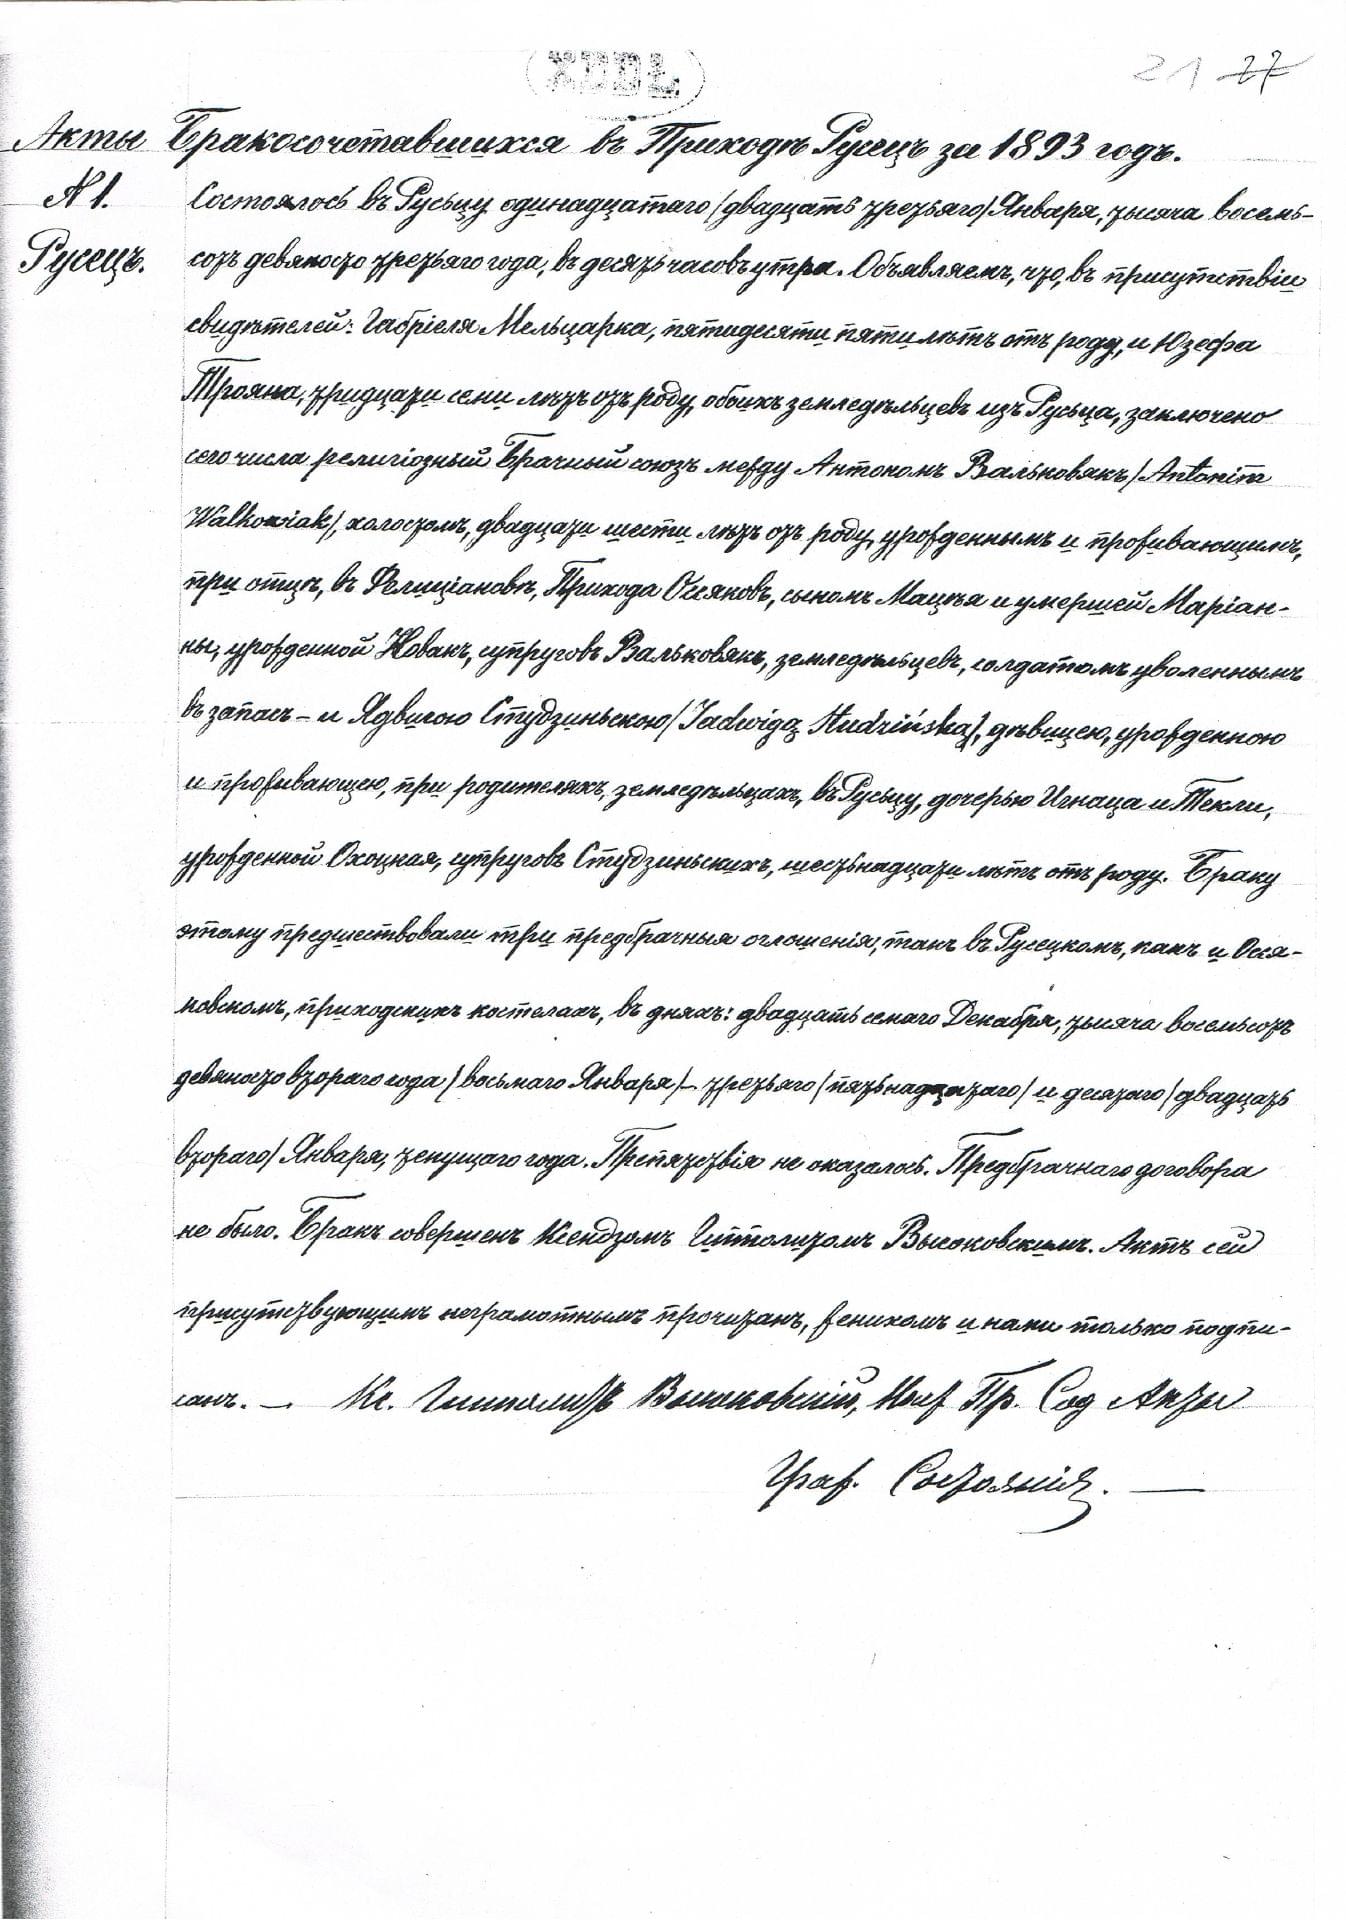 21 27
Акты Бракосочетавшихся въ Приходѣ Русецъ за 1893 годъ.
N 1.
Русецъ.
Состоялось въ Русьцу одинадцатаго /двадцать третьяго/ Января, тысяча восемь-
сотъ девяносто третьяго года, въ десять часовъ утра. Объявляемъ, что, въ присутствіи
свидѣтелей: Габріеля Мельцарка, пятидесяти пяти лѣтъ отъ роду, и Юзефа
Трояна, тридцати семи лѣтъ отъ роду, обоихъ земледѣльцевъ изъ Русьца, заключено
сего числа религіозный Брачный союзъ между Антономъ Вальковякъ /Antonim
Walkowiak/, холостомъ, двадцати шести лѣтъ отъ роду, урожденнымъ и проживающимъ,
при отцѣ, въ Фелиціановѣ, Прихода Осяковъ, сыномъ Мацѣя и умершей Маріан-
ны, урожденной Новакъ, супруговъ Вальковякъ, земледѣльцевъ, солдатомъ уволеннымъ
въ запасъ - и Ядвигою Студзиньскою /Jadwigą Studzińską/, дѣвицею, урожденною
и проживающею, при родителяхъ, земледѣльцахъ, въ Русьцу, дочерью Игнаца и Текли,
урожденной Охоцкая, супруговъ Студзиньскихъ, шестьнадцати лѣтъ отъ роду. Браку
этому предшествовали три предбрачныя оглошенія, такъ въ Русецкомъ, какъ и Ося-
ковскомъ, приходскихъ костелахъ, въ дняхъ: двадцать семаго Декабря, тысяча восемьсотъ
девяносто втораго года /восьмаго Января/ - третьяго /пятьнадцатаго/ и десятаго /двадцать
втораго/ Января, текущаго года. Препятствія не оказалось. Предбрачнаго договора
не было. Бракъ совершенъ Ксендзомъ Гипполитомъ Высоковскимъ. Актъ сей
присутствующимъ неграмотнымъ прочитанъ, женихомъ и нами только подпи-
санъ. — Кс. Гипполитъ Высоковскій, Наст. Пр. Сод Акты
Граж. Состоянія. —